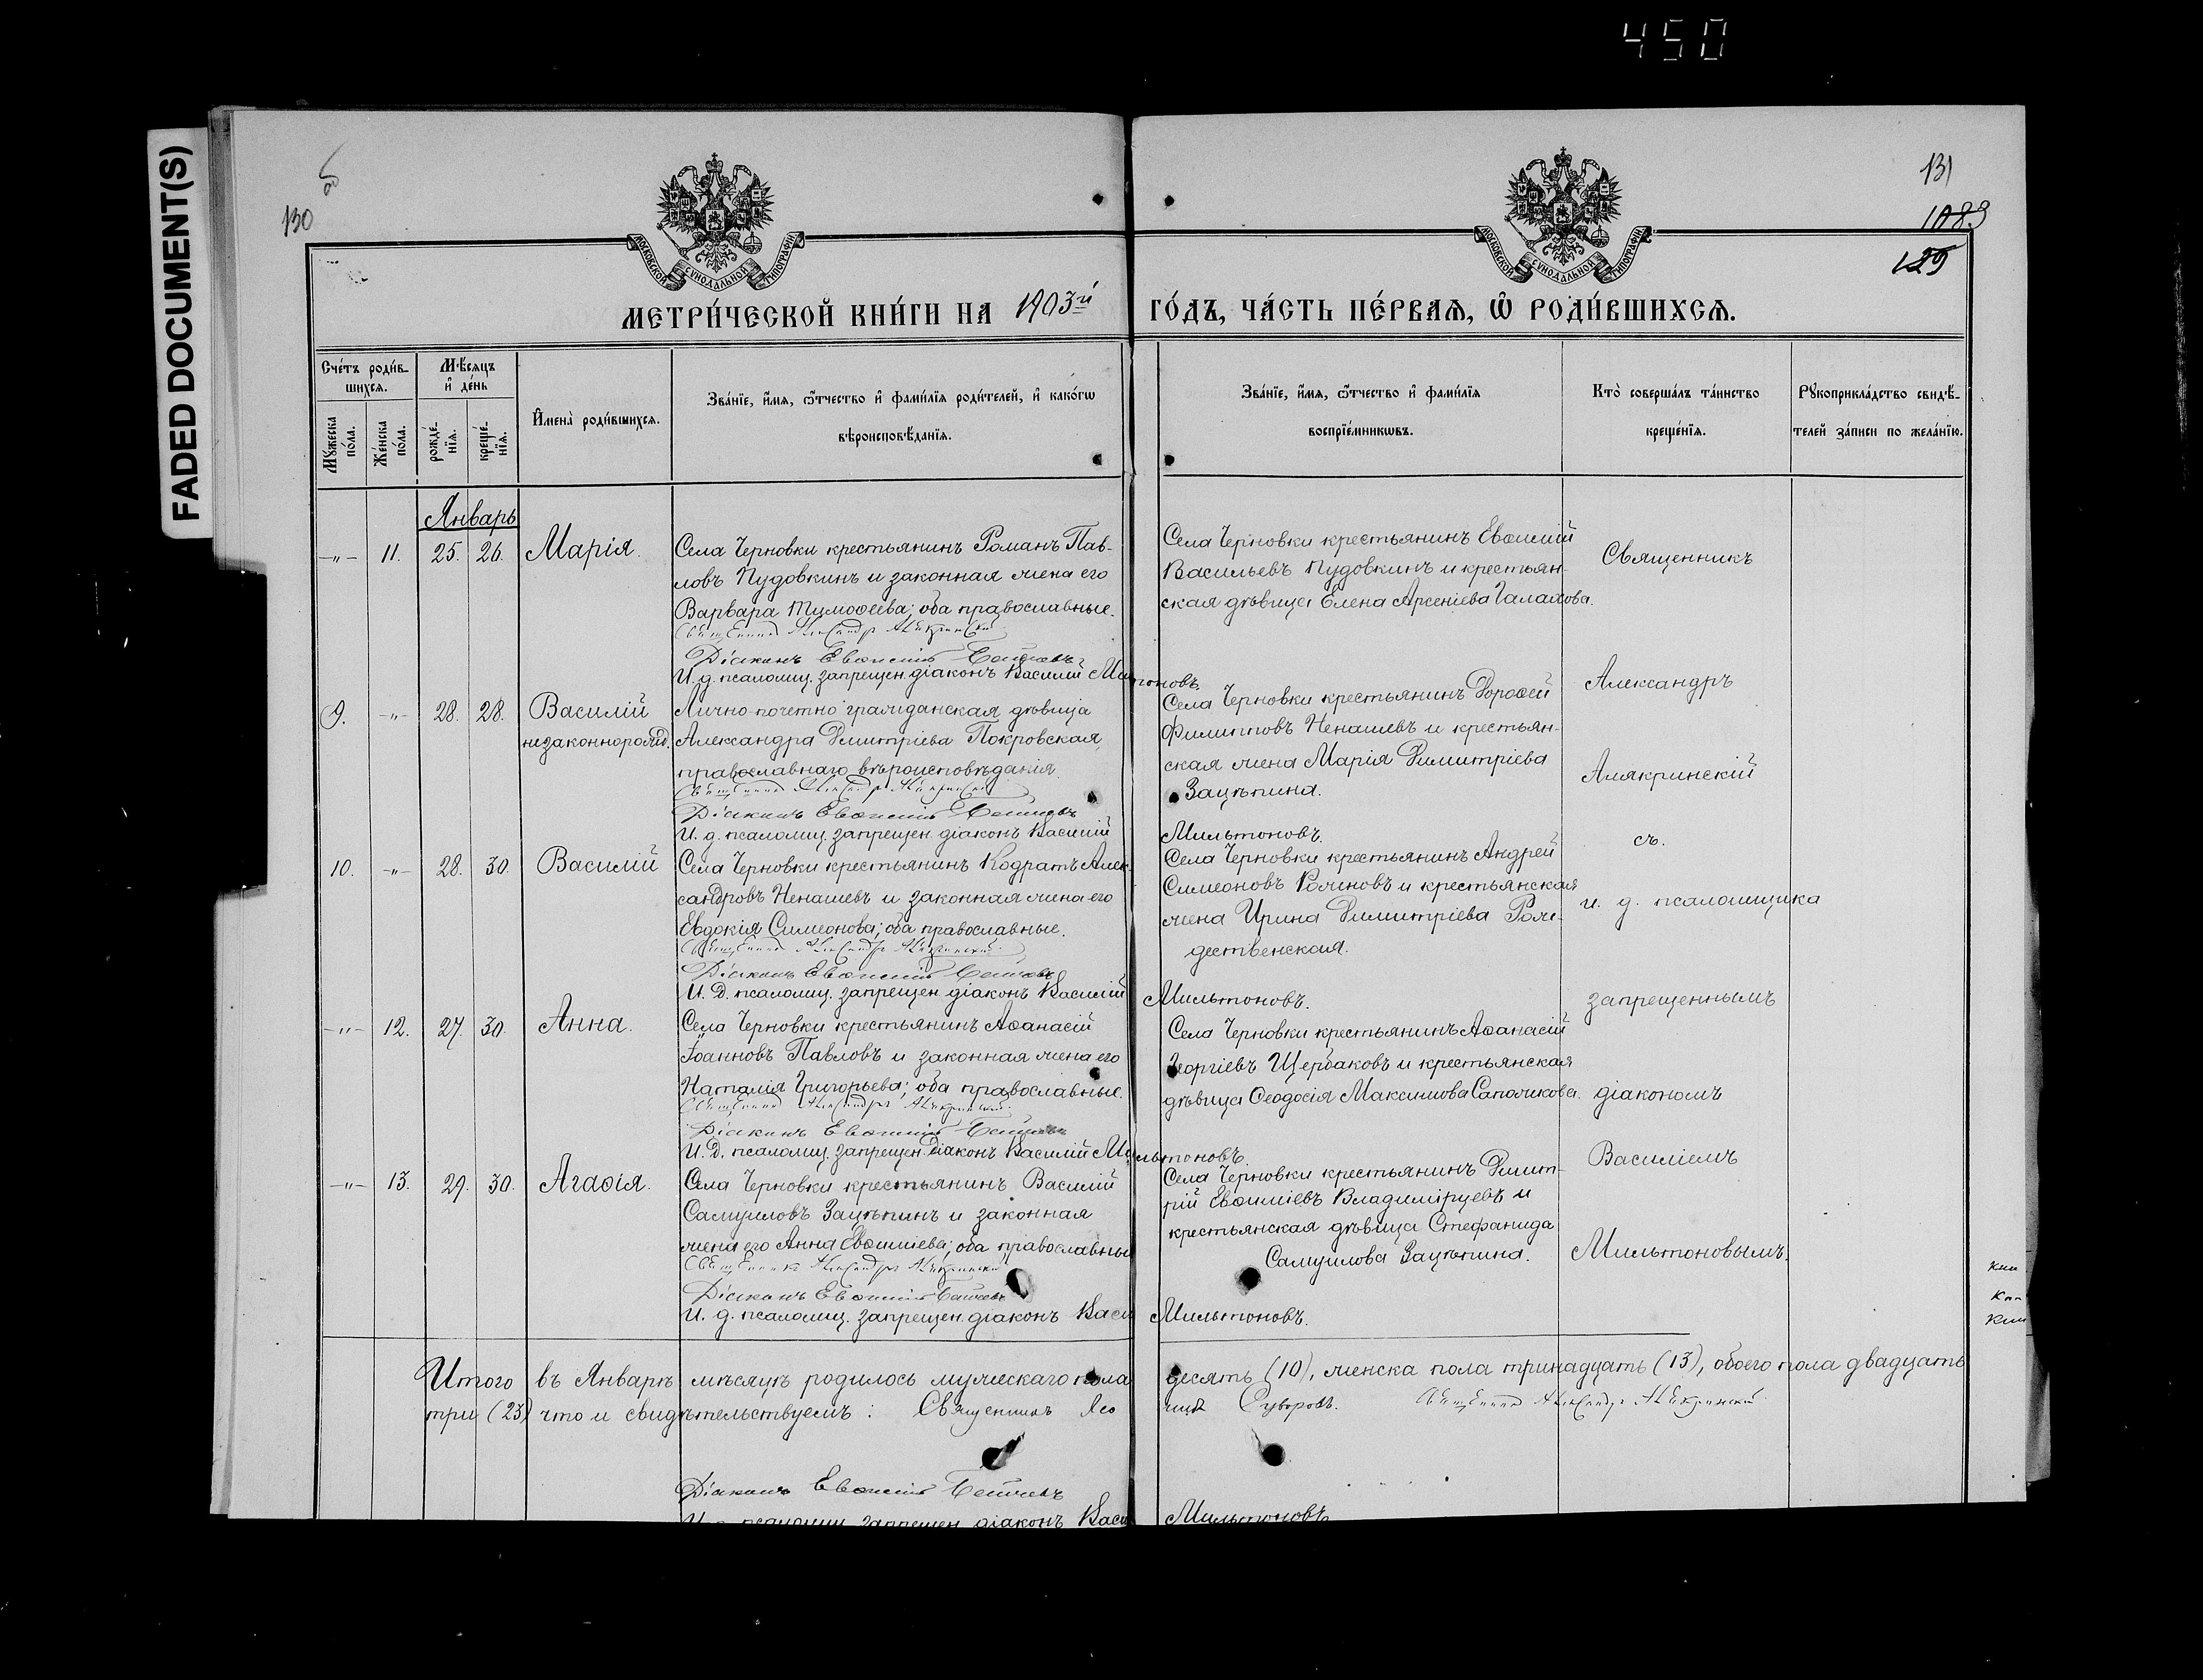 450
FADED DOCUMENT(S)
130
об
131
1083
129
МОСКОВСКОЙ СѴНОДАЛЬНОЙ ТИПОГРАФІИ
МОСКОВСКОЙ СѴНОДАЛЬНОЙ ТИПОГРАФІИ
МЕТРИ́ЧЕСКОЙ КНИ́ГИ НА 1903й ГО́ДЪ, ЧА́СТЬ ПЕ́РВАѦ, Ѽ РОДИ́ВШИХСѦ.
Сче́тъ роди́в-
шихсѧ.
Мѣ́сѧцъ
и҆ де́нь
Мꙋ́жеска
по́ла.
Же́нска
по́ла.
рожде́-
нїѧ.
креще́-
нїѧ.
И҆мена̀ роди́вшихсѧ.
Зва́нїе, и҆́мѧ, ѻ҆́тчество и҆ фами́лїѧ роди́телей, и҆ како́гѡ
вѣроисповѣ́данїѧ.
Зва́нїе, и҆́мѧ, ѻ҆́тчество и҆ фами́лїѧ
воспрїе́мникѡвъ.
Кто̀ соверша́лъ та́инство
креще́нїѧ.
Рꙋкоприкла́дство свидѣ́-
телей за́писи по жела́нїю.
Январь
-"- 11. 25. 26. Марія.
Села Черновки крестьянинъ Романъ Пав-
ловъ Пудовкинъ и законная жена его
Варвара Тимоѳеева; оба православные.
Священникъ Александръ Алякринскій
Діаконъ Евѳимій
И. д. псаломщ. запрещен. діаконъ Василій Мильтоновъ.
Села Черновки крестьянинъ Евѳимій
Васильевъ Пудовкинъ и крестьян-
ская дѣвица Елена Арсеніева Галахова.
9. -"- 28. 28. Василій
незаконнорожд.
Лично-почетно гражданская дѣвица
Александра Димитріева Покровская,
православнаго вѣроисповѣданія.
Священникъ Александръ Алякринскій
Діаконъ Евѳимій
И. д. псаломщ. запрещен. діаконъ Василій Мильтоновъ.
Села Черновки крестьянинъ Дороѳей
Филипповъ Ненашевъ и крестьян-
ская жена Марія Димитріева
Зацѣпина.
10. -"- 28. 30. Василій
Села Черновки крестьянинъ Кодратъ Алек-
сандровъ Ненашевъ и законная жена его
Евдокія Симеонова; оба православные.
Священникъ Александръ Алякринскій
Діаконъ Евѳимій
И. Д. псаломщ. запрещен. діаконъ Василій Мильтоновъ.
Села Черновки крестьянинъ Андрей
Симеоновъ Роженовъ и крестьянская
жена Ирина Димитріева Рож-
дественская.
-"- 12. 27. 30. Анна.
Села Черновки крестьянинъ Аѳанасій
Іоанновъ Павловъ и законная жена его
Наталія Григорьева; оба православные.
Священникъ Александръ Алякринскій
Діаконъ Евѳимій
И. Д. псаломщ. запрещен. діаконъ Василій Мильтоновъ.
Села Черновки крестьянинъ Аѳанасій
Георгіевъ Щербаковъ и крестьянская
дѣвица Ѳеодосія Максимова Сапожкова.
-"- 13. 29. 30. Агаѳія.
Села Черновки крестьянинъ Василій
Самуиловъ Зацѣпинъ и законная
жена его Анна Евѳимiева; оба православные
Священникъ Александръ Алякринскій
Діаконъ Евѳимій
И. д. псаломщ. запрещен. діаконъ Васи Мильтоновъ.
Села Черновки крестьянинъ Димит-
рій Евѳиміевъ Владимірцевъ и
крестьянская дѣвица Стефанида
Самуилова Зацѣпина.
Священникъ
Александръ
Алякринскій
съ.
и. д. псаломщика
запрещеннымъ
діакономъ
Василіемъ
Мильтоновымъ.
Итого въ Январѣ мѣсяцѣ родилось мужескаго пола десять (10), женска пола тринадцать (13), обоего пола двадцать
три (23) что и свидѣтельствуемъ: Священникъ Суворовъ. Священникъ Александръ Алякринскій
Діаконъ Евѳимій
И. д. псаломщ. запрещен. діаконъ Васи Мильтоновъ